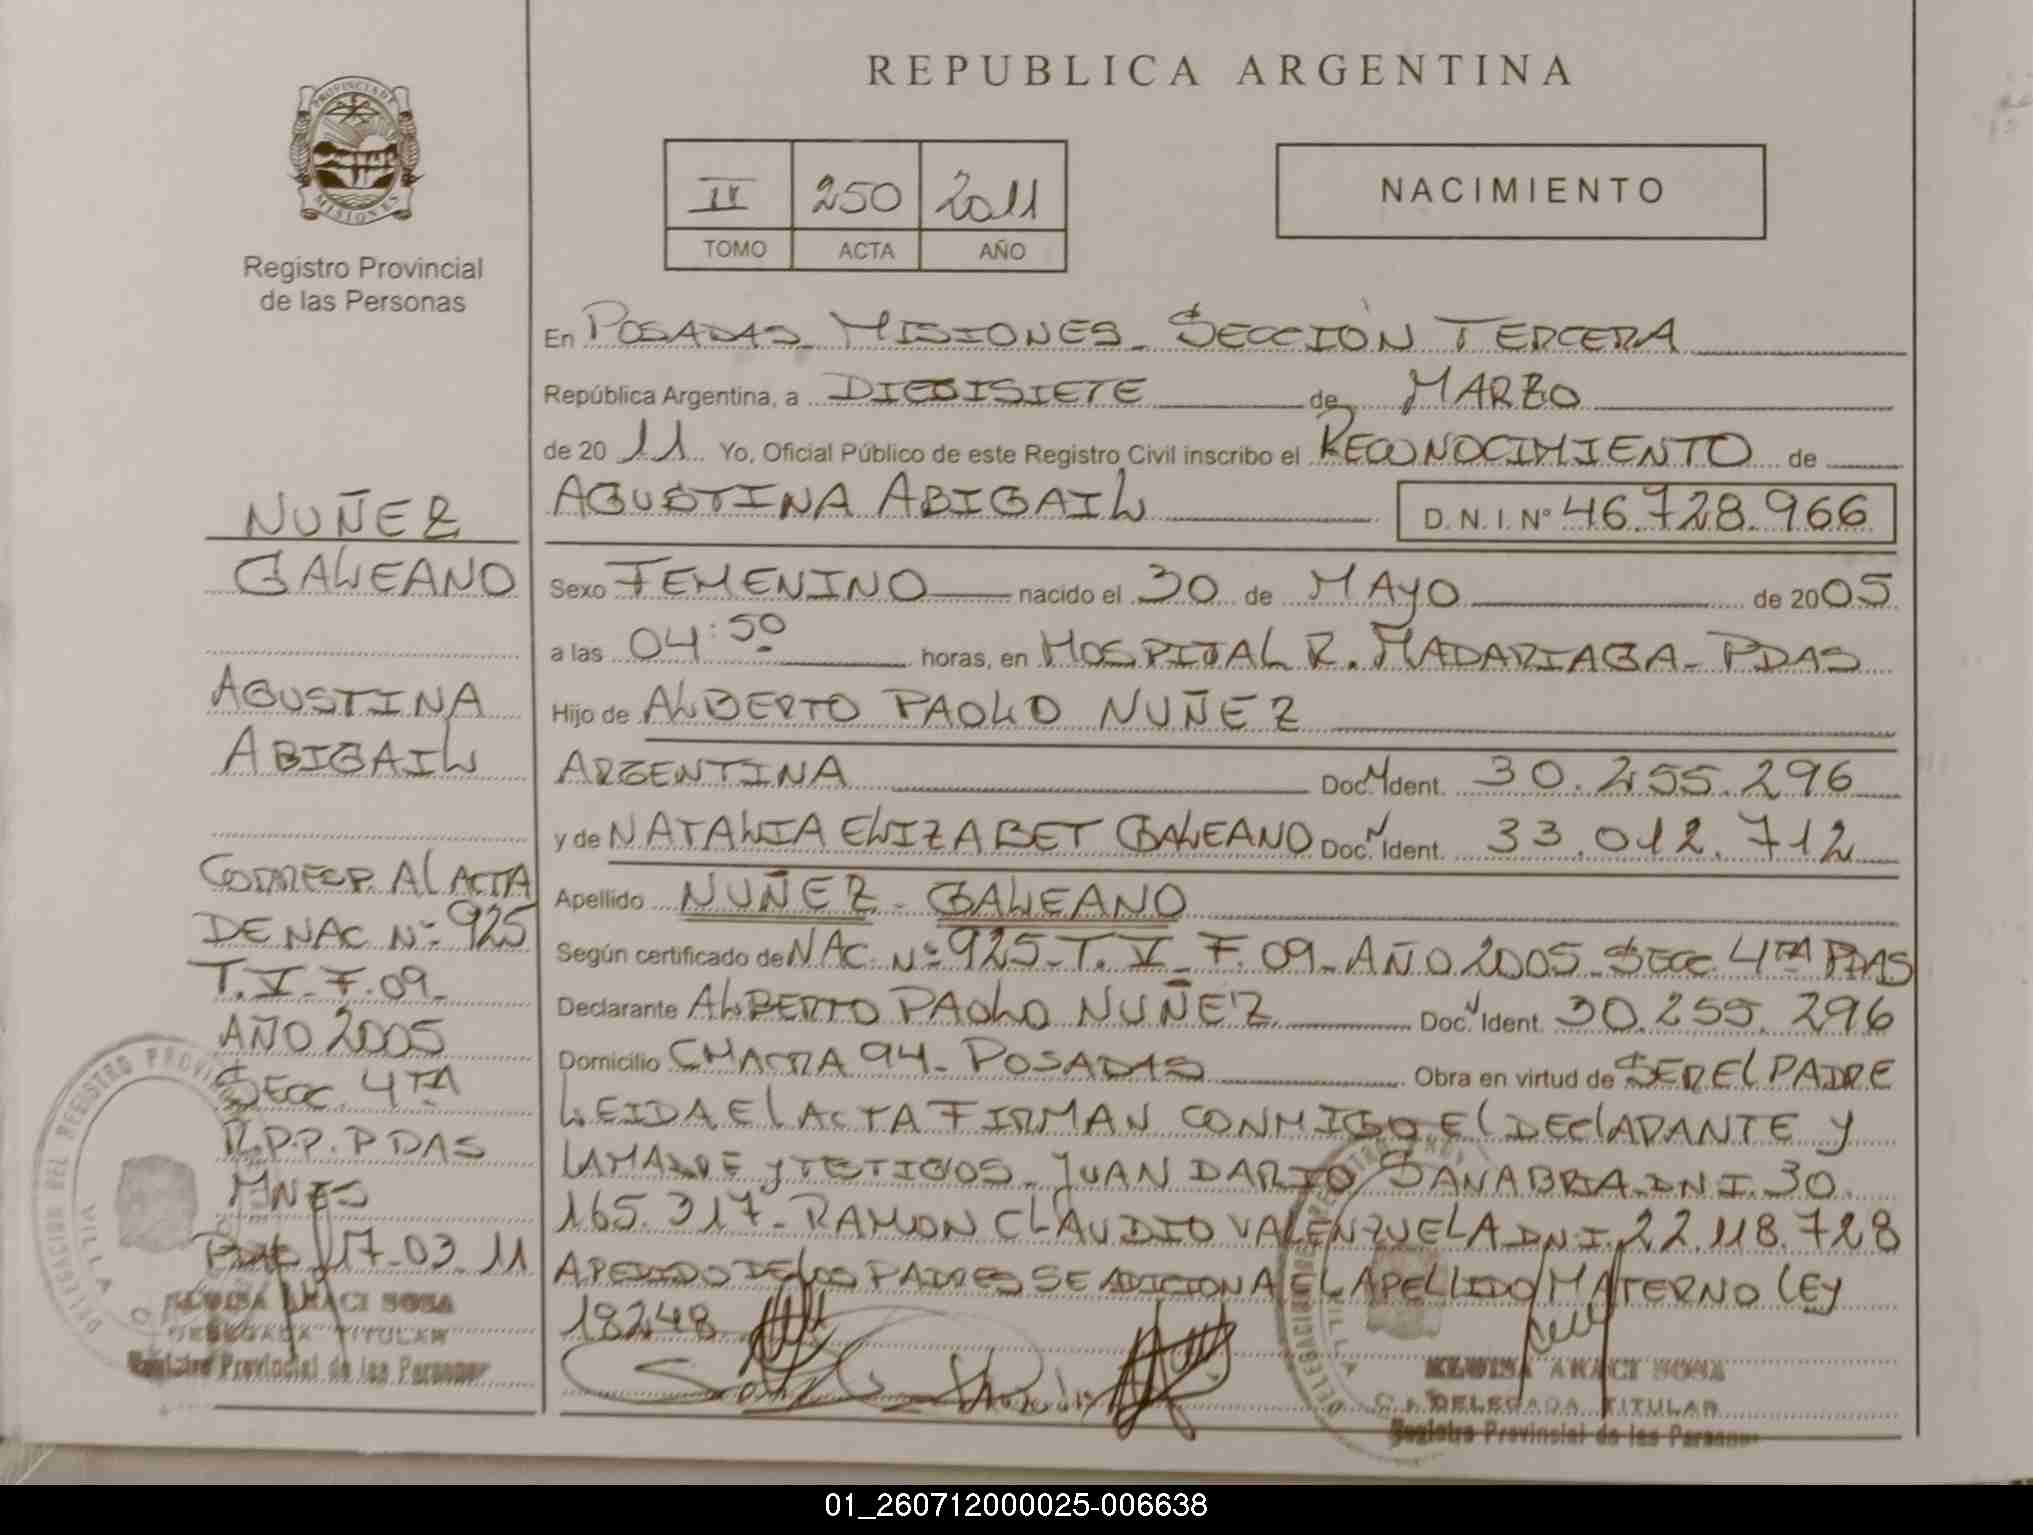 REPUBLICA ARGENTINA
PROVINCIA DE
MISIONES
Registro Provincial
de las Personas
II 250 2011
TOMO ACTA AÑO
NACIMIENTO
En POSADAS MISIONES - SECCIÓN TERCERA
República Argentina, a DIECISIETE de MARZO
de 2011 Yo, Oficial Público de este Registro Civil inscribo el RECONOCIMIENTO de
AGUSTINA ABIGAIL D.N.I. Nº 46.728.966
Sexo FEMENINO nacido el 30 de MAYO de 2005
a las 04:50 horas, en HOSPITAL R. MADARIAGA - PDAS
Hijo de ALBERTO PAOLO NUÑEZ
ARGENTINA Doc. Ident. 30.255.296
y de NATALIA ELIZABET GALEANO Doc. Ident. 33.012.712
Apellido NUÑEZ - GALEANO
Según certificado de NAC. Nº 925 - T. V - F. 09 - AÑO 2005 - SECC. 4TA PDAS
Declarante ALBERTO PAOLO NUÑEZ Doc. Ident. 30.255.296
Domicilio CHACRA 94 - POSADAS Obra en virtud de SER EL PADRE
LEIDA El ACTA FIRMAN CONMIGO El DEClARANTE y
LA MADRE y TETIGOS - JUAN DARIO SANABRIA DNI. 30.
165.317 - RAMON CLAUDIO VALENZUELA DNI. 22.118.728
A PEDIDO DE LOS PADRES SE ADICIONA EL APELLIDO MATERNO LEY
18248
ELOISA ARACI SOSA
DELEGADA TITULAR
Registro Provincial de las Personas
NUÑEZ
GALEANO
AGUSTINA
ABIGAIL
CORRESP. Al ACTA
DE NAC Nº 925
T. V - F. 09 -
AÑO 2005
SECC. 4TA
R.P.P. PDAS
MNES
PDAS 17-03-11
DELEGACION DEL REGISTRO PROVINCIAL
VILLA
ELOISA ARACI SOSA
DELEGADA TITULAR
Registro Provincial de las Personas
01_260712000025-006638